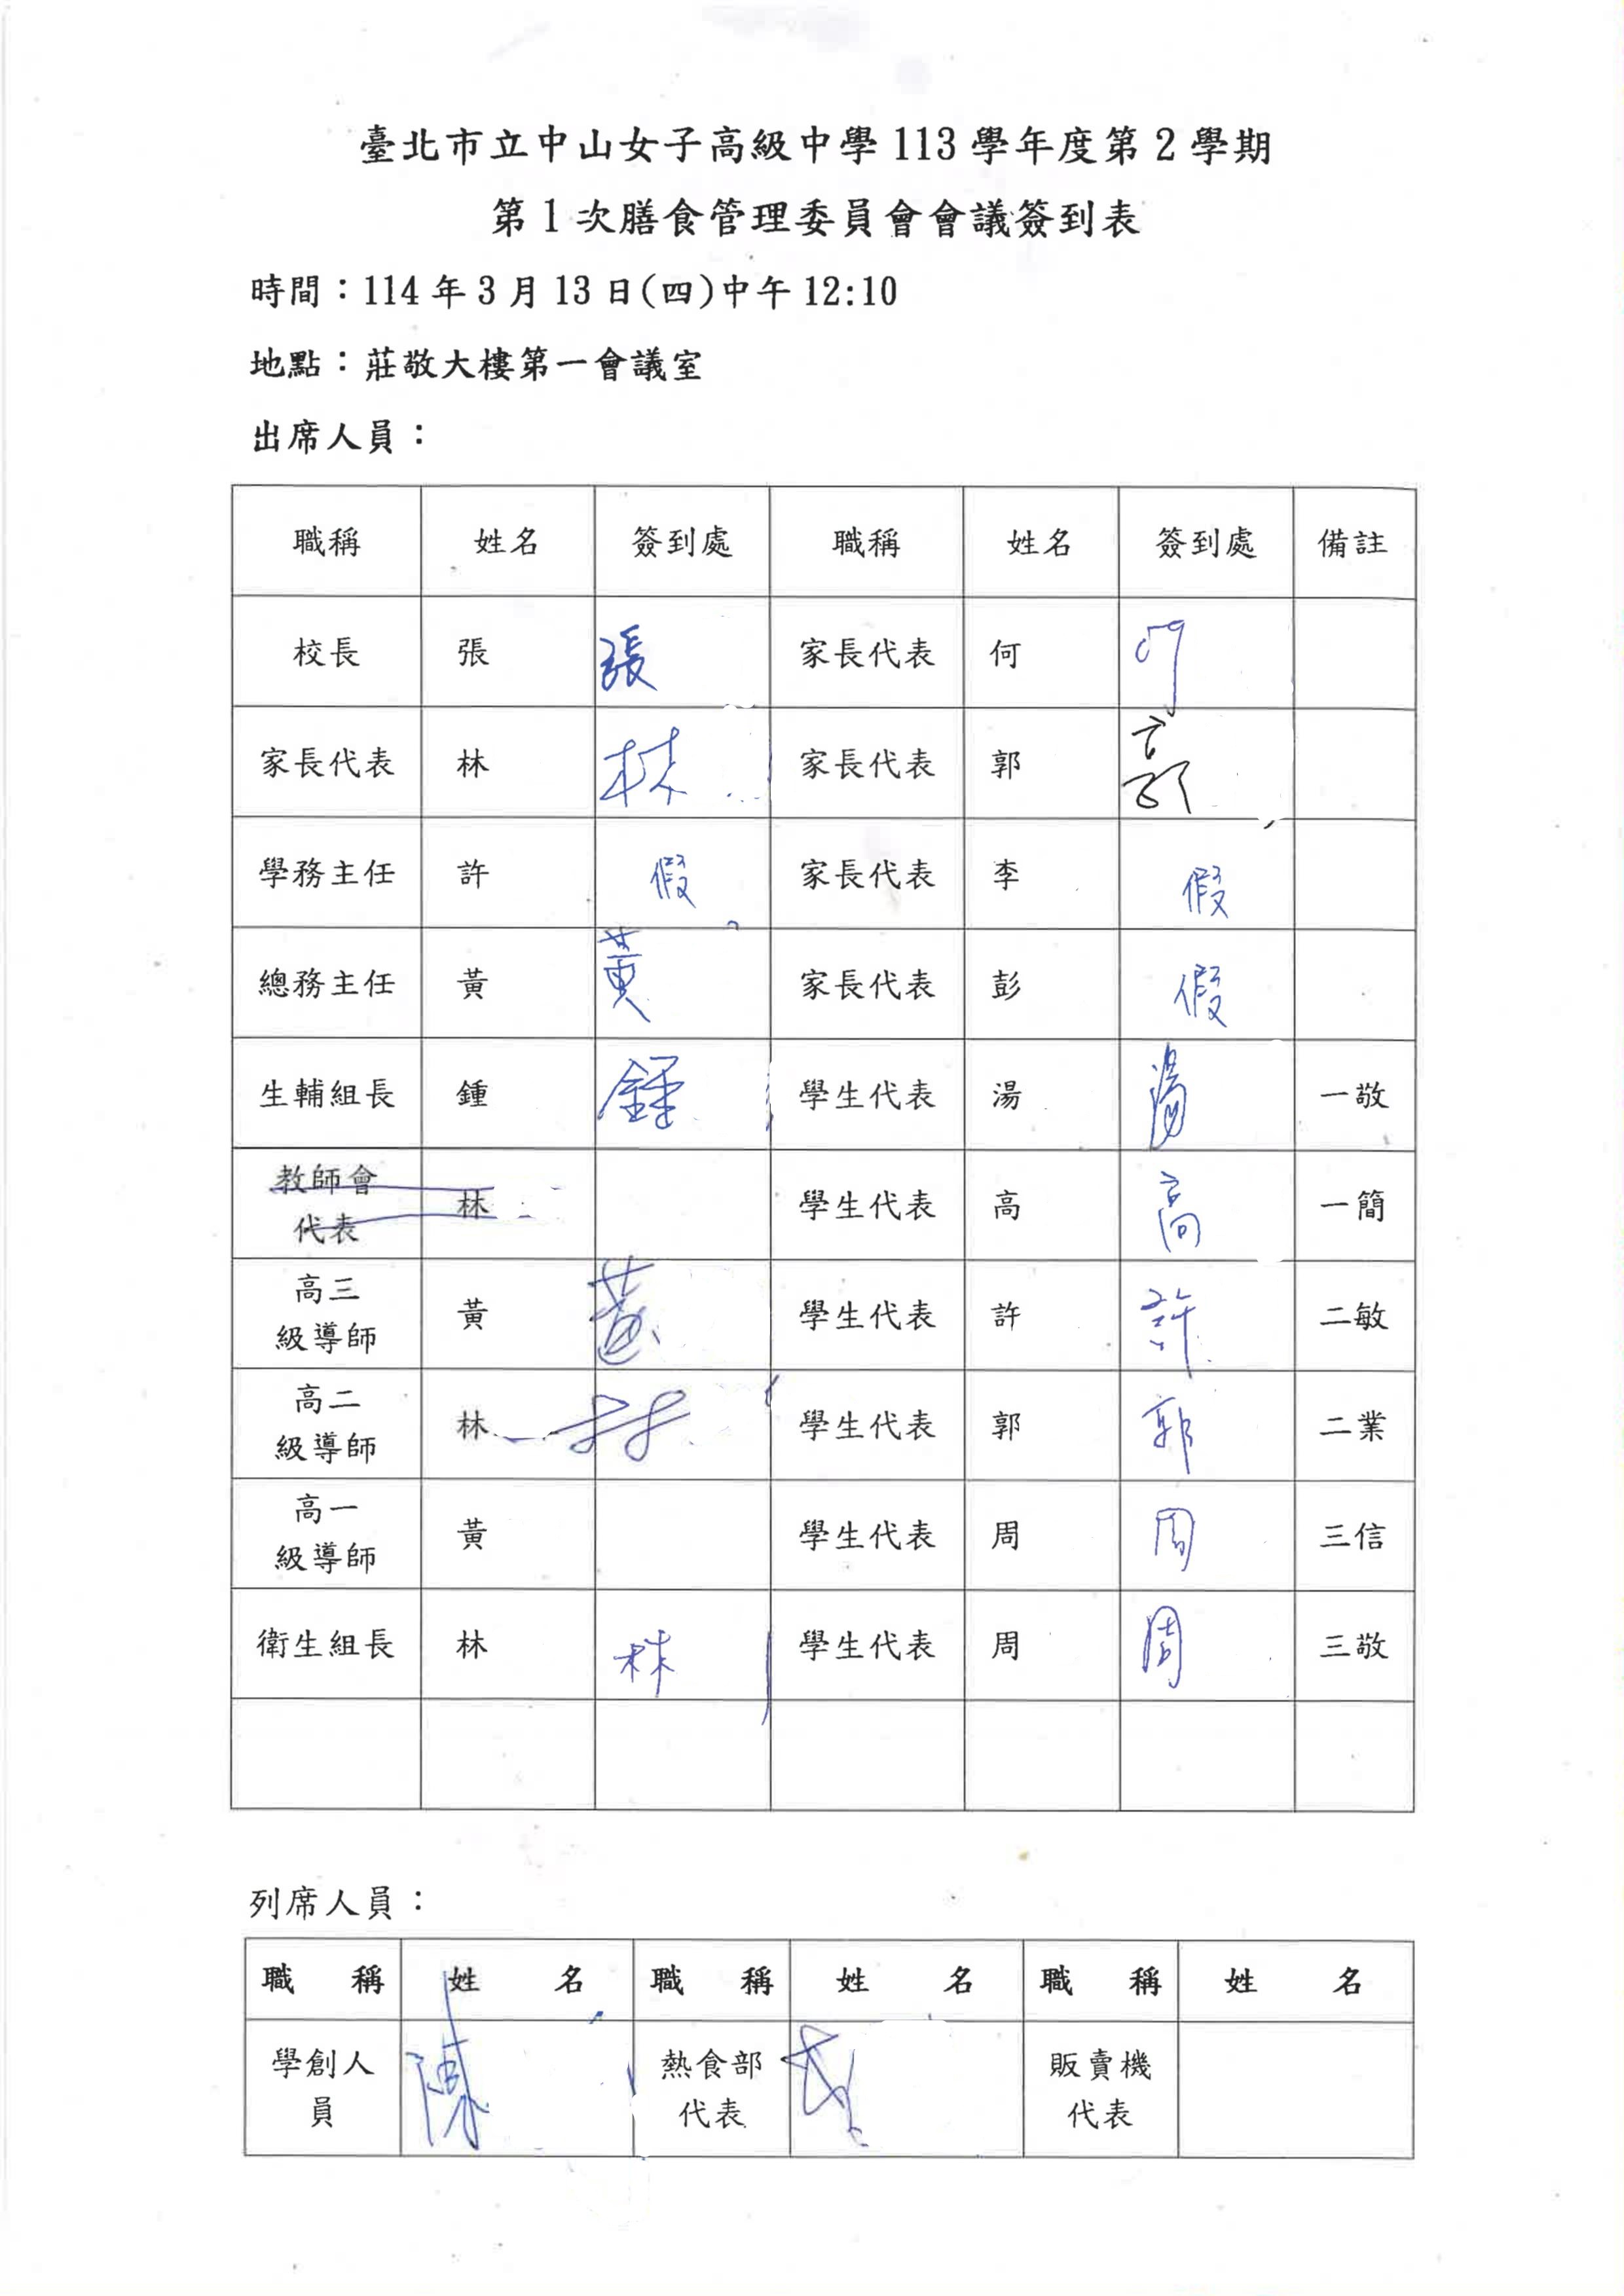 臺北市立中山女子高級中學 113 學年度第 2 學期
第 1 次膳食管理委員會會議簽到表
時間：114 年 3 月 13 日(四)中午 12:10
地點：莊敬大樓第一會議室
出席人員：
職稱 姓名 簽到處 職稱 姓名 簽到處 備註
校長 張 張 家長代表 何 何
家長代表 林 林 家長代表 郭 郭
學務主任 許 假 家長代表 李 假
總務主任 黃 黃 家長代表 彭 假
生輔組長 鍾 鍾 學生代表 湯 湯 一敬
教師會
代表 林 學生代表 高 高 一簡
高三
級導師 黃 黃 學生代表 許 許 二敏
高二
級導師 林 林 學生代表 郭 郭 二業
高一
級導師 黃 學生代表 周 周 三信
衛生組長 林 林 學生代表 周 周 三敬
列席人員：
職 稱 姓 名 職 稱 姓 名 職 稱 姓 名
學創人
員 陳 熱食部
代表 販賣機
代表